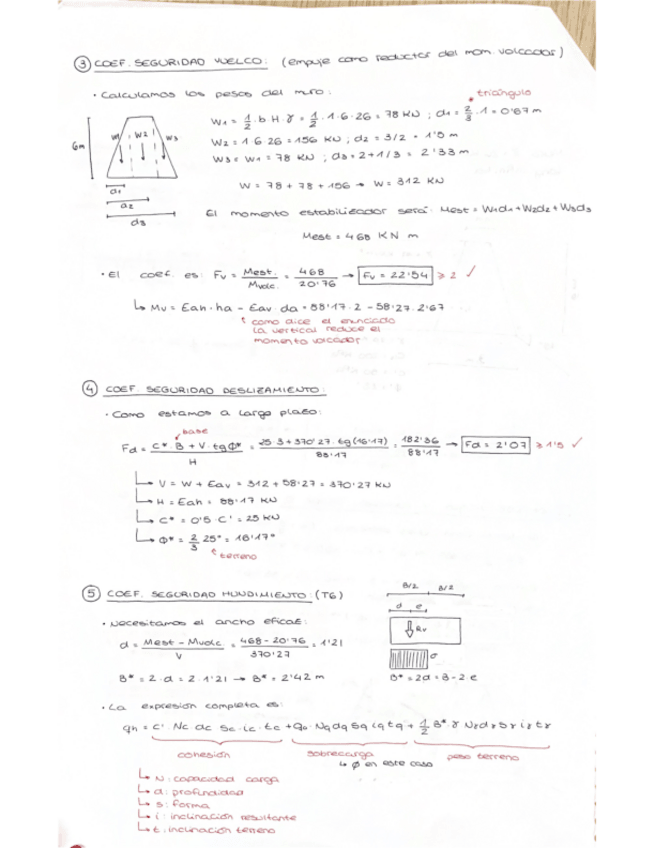 ③ COEF. SEGURIDAD VUELCO: (empuje como reductor del mom. volcador)
• Calculamos los pesos del muro:
triángulo
6m
W1 W2 W3
d1
d2
d3
W1 = 1/2 · b H · γ = 1/2 · 1 · 6 · 26 = 78 KN ; d1 = 2/3 · 1 = 0'67 m
W2 = 1 · 6 · 26 = 156 KN ; d2 = 3/2 = 1'5 m
W3 = W1 = 78 KN ; d3 = 2 + 1/3 = 2'33 m
W = 78 + 78 + 156 → W = 312 KN
El momento estabilizador será: Mest = W1d1 + W2d2 + W3d3
Mest = 468 KN m
• El coef. es: Fv = Mest. / Mvolc. = 468 / 20'76 → Fv = 22'54 ≥ 2 ✓
↳ Mv = Eah · ha - Eav · da = 88'17 · 2 - 58'27 · 2'67
↑ como dice el enunciado
la vertical reduce el
momento volcador
④ COEF. SEGURIDAD DESLIZAMIENTO:
• Como estamos a largo plazo:
base
Fd = (C* B + V · tg Φ*) / H = (25·3 + 370'27 · tg (16'17)) / 88'17 = 182'36 / 88'17 → Fd = 2'07 ≥ 1'5 ✓
↳ V = W + Eav = 312 + 58'27 = 370'27 KN
↳ H = Eah = 88'17 KN
↳ C* = 0'5 · C' = 25 KN
↳ Φ* = 2/3 25° = 16'17°
↑ terreno
⑤ COEF. SEGURIDAD HUNDIMIENTO: (T6)
B/2 B/2
d e
Rv
σ
B* = 2d = B - 2e
• Necesitamos el ancho eficaz:
d = (Mest - Mvolc) / V = (468 - 20'76) / 370'27 = 1'21
B* = 2 · d = 2 · 1'21 → B* = 2'42 m
• La expresión completa es:
qh = C' · Nc dc Sc · ic · tc + q0 · Nq dq Sq iq tq + 1/2 B* γ Nγ dγ Sγ iγ tγ
cohesión sobrecarga peso terreno
↳ Ø en este caso
↳ N: capacidad carga
↳ d: profundidad
↳ s: forma
↳ i: inclinación resultante
↳ t: inclinación terreno